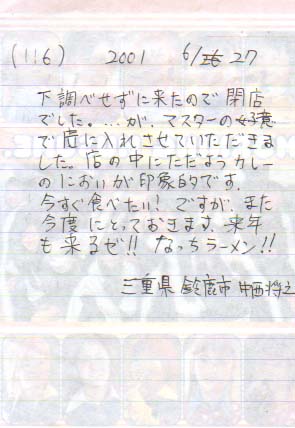 (116) 2001 6/27
下調べせずに来たので閉店
でした。…が、マスターの好意
で店に入れさせていただきま
した。店の中にただようカレー
のにおいが印象的です。
今すぐ食べたい!ですが、また
今度にとっておきます。来年
も来るゼ!!なっちラーメン!!
三重県 鈴鹿市 中西将之